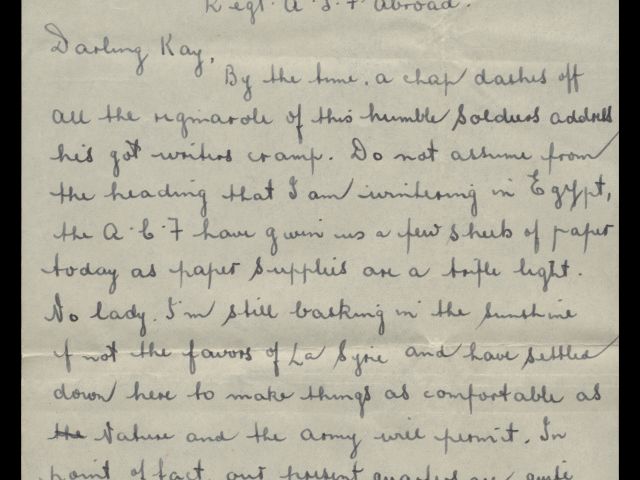 Regt. A. I. F Abroad.
Darling Kay,
By the time, a chap dashes off
all the rigmarole of this humble soldiers address
his got writers cramp. Do not assume from
the heading that I am wintering in Egypt,
the A.C.F have given us a few sheets of paper
today as paper supplies are a trifle light.
No lady. I'm still basking in the sunshine
if not the favors of La Syrie and have settled
down here to make things as comfortable as
the Nature and the army will permit. In
point of fact, our present quarters are quite